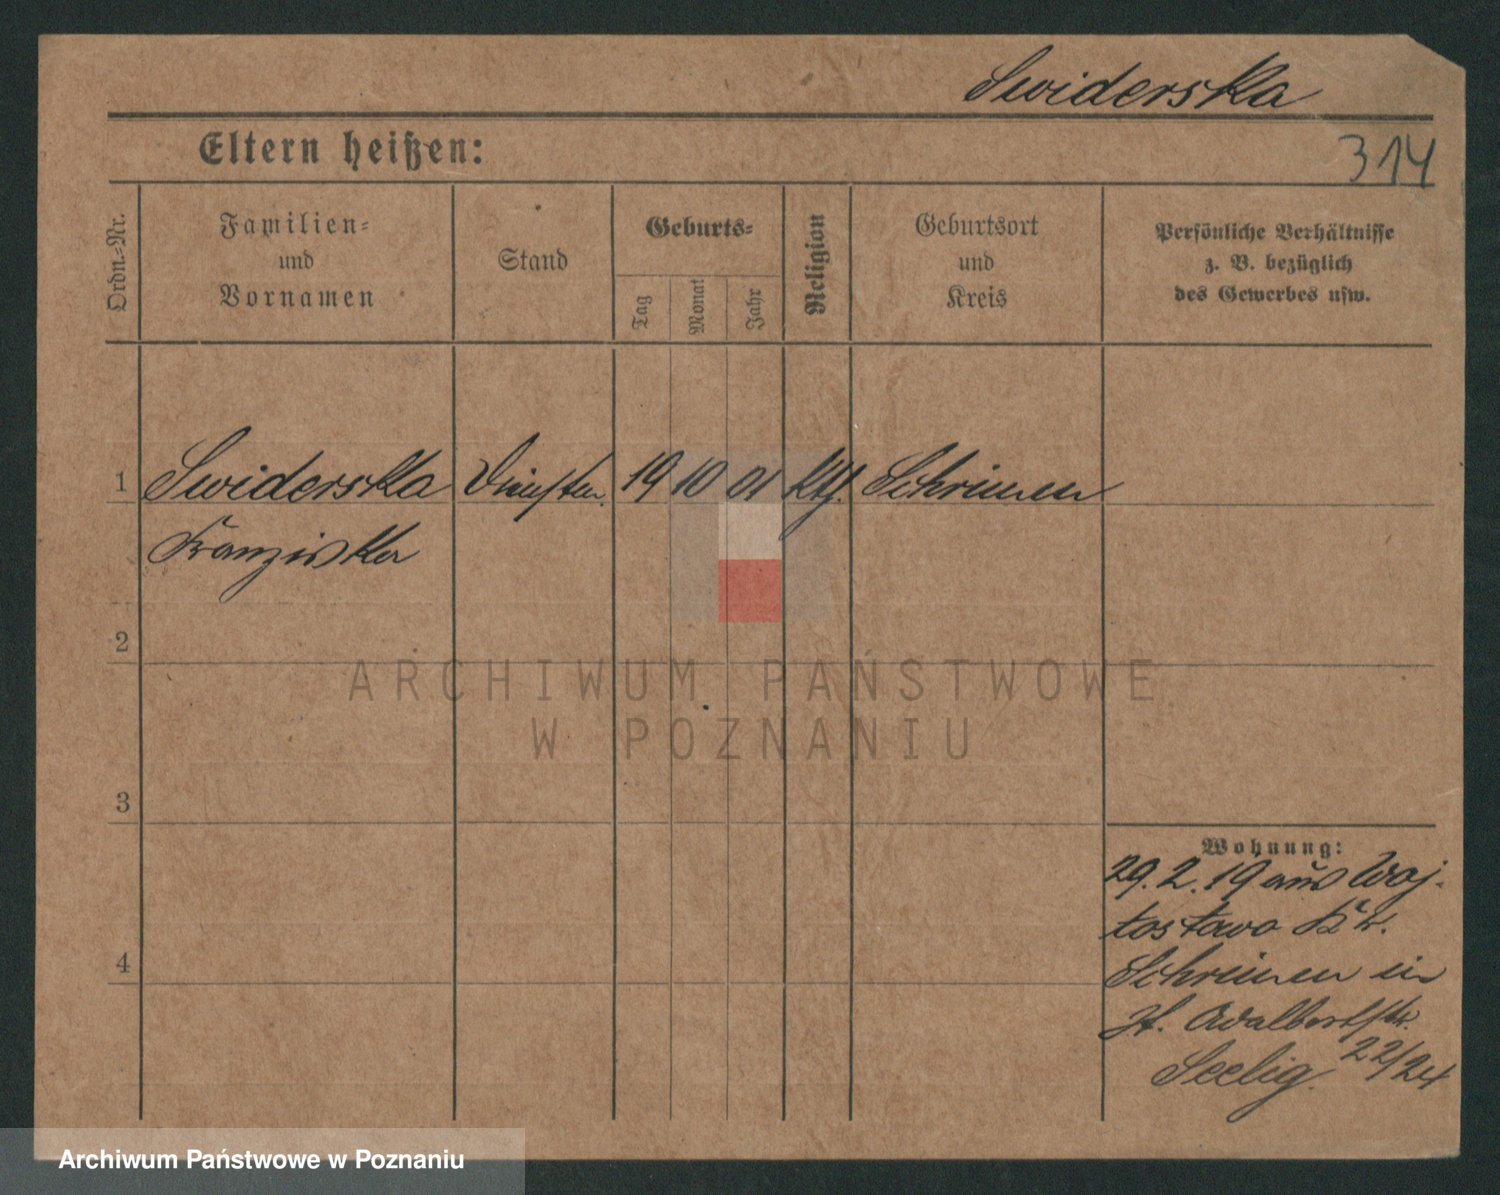 Swiderska
314
Eltern heißen:
Ordn.-Nr.
Familien-
und
Vornamen
Stand
Geburts-
Tag
Monat
Jahr
Religion
Geburtsort
und
Kreis
Persönliche Verhältnisse
z. B. bezüglich
des Gewerbes usw.
1 Swiderska 19 10 01 kth. Schrimm
Franziska
2
3
4
Wohnung:
29.2.19 aus Woj-
tostwo Kr.
Schrimm in
St. Adalbertstr.
22/24
Seelig.
ARCHIWUM PAŃSTWOWE
W POZNANIU
Archiwum Państwowe w Poznaniu